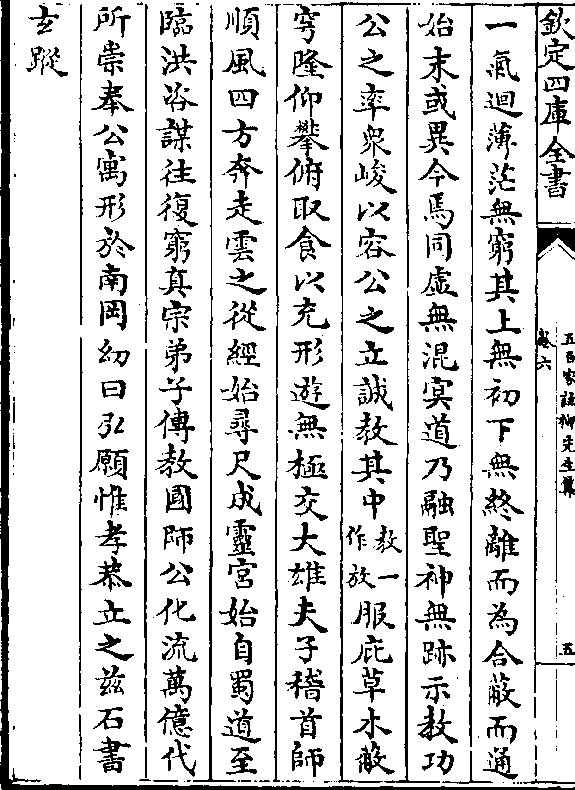 欽定四庫全書
五百家註柳先生集
卷六
五
一氣迴薄茫無窮其上無初下無終離而為合蔽而通
始末或異今焉同虛無混冥道乃融聖神無跡示教功
公之率衆峻以容公之立誠教其中教一作放服庇草木蔽
穹隆仰攀俯取食以充形遊無極交大雄夫子稽首師
順風四方奔走雲之從經始尋尺成靈宮始自蜀道至
臨洪咨謀往復窮真宗弟子傳教國師公化流萬億代
所崇奉公寓形於南岡幼曰弘願惟孝恭立之兹石書
玄蹤